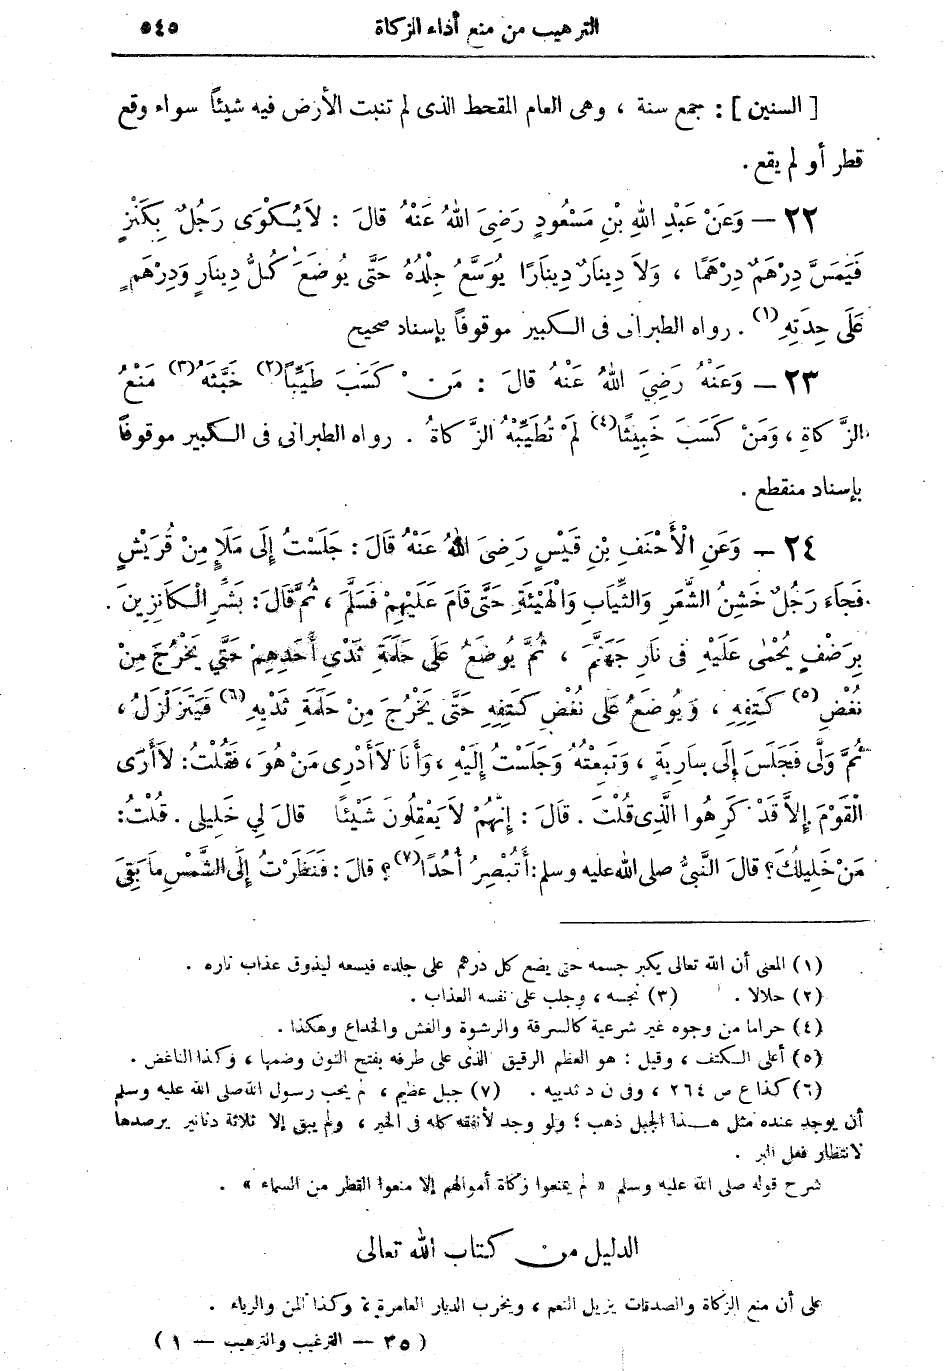 الترهيب من منع أداء الزكاة ٥٤٥
[ السنين ] : جمع سنة ، وهى العام المقحط الذى لم تنبت الأرض فيه شيئاً سواء وقع
قطر أو لم يقع .
٢٢ — وَعَنْ عَبْدِ اللهِ بْنِ مَسْعُودٍ رَضِىَ اللهُ عَنْهُ قَالَ : لاَ يُكْوَى رَجُلٌ بِكَنْزٍ
فَيَمَسَّ دِرْهَمٌ دِرْهَمًا ، وَلاَ دِينَارٌ دِينَارًا يُوَسَّعُ جِلْدُهُ حَتَّى يُوضَعَ كُلُّ دِينَارٍ وَدِرْهَمٍ
عَلَى حِدَتِهِ (١) . رواه الطبرانى فى الكبير موقوفاً بإسناد صحيح
٢٣ — وَعَنْهُ رَضِيَ اللهُ عَنْهُ قَالَ : مَنْ كَسَبَ طَيِّبًا (٢) خَبَّثَهُ (٣) مَنْعُ
الزَّكَاةِ ، وَمَنْ كَسَبَ خَبِيثًا (٤) لَمْ تُطَيِّبْهُ الزَّكَاةُ . رواه الطبرانى فى الكبير موقوفاً
بإسناد منقطع .
٢٤ — وَعَنِ الْأَحْنَفِ بْنِ قَيْسٍ رَضِىَ اللهُ عَنْهُ قَالَ : جَلَسْتُ إِلَى مَلَإٍ مِنْ قُرَيْشٍ
فَجَاءَ رَجُلٌ خَشِنُ الشَّعَرِ وَالثِّيَابِ وَالْهَيْئَةِ حَتَّى قَامَ عَلَيْهِمْ فَسَلَّمَ ، ثُمَّ قَالَ : بَشِّرِ الْكَانِزِينَ
بِرَضْفٍ يُحْمٰى عَلَيْهِ فى نَارِ جَهَنَّمَ ، ثُمَّ يُوضَعُ عَلَى حَلَمَةِ ثَدْىِ أَحَدِهِمْ حَتَّى يَخْرُجَ مِنْ
نُغْضِ (٥) كَتِفِهِ ، وَيُوضَعُ عَلَى نُغْضِ كَتِفِهِ حَتَّى يَخْرُجَ مِنْ حَلَمَةِ ثَدْيِهِ (٦) فَيَتَزَلْزَلُ ،
ثُمَّ وَلَّى فَجَلَسَ إِلَى سَارِيَةٍ ، وَتَبِعْتُهُ وَجَلَسْتُ إِلَيْهِ ، وَأَنَا لاَ أَدْرِى مَنْ هُوَ ، فَقُلْتُ : لاَ أَرَى
الْقَوْمَ إِلاَّ قَدْ كَرِهُوا الَّذِى قُلْتَ . قَالَ : إِنَّهُمْ لاَ يَعْقِلُونَ شَيْئًا قَالَ لِي خَلِيلِى . قُلْتُ :
مَنْ خَلِيلُكَ ؟ قَالَ النَّبِيُّ صلى الله عليه وسلم : أَتُبْصِرُ أُحُدًا (٧) ؟ قَالَ : فَنَظَرْتُ إِلَى الشَّمْسِ مَا بَقِىَ
(١) المعنى أن الله تعالى يكبر جسمه حتى يضع كل درهم على جلده فيسعه ليذوق عذاب ناره .
(٢) حلالا . (٣) نجسه ، وجلب على نفسه العذاب .
(٤) حراما من وجوه غير شرعية كالسرقة والرشوة والغش والخداع وهكذا .
(٥) أعلى الكتف ، وقيل : هو العظم الرقيق الذى على طرفه بفتح النون وضمها ، وكذا الناغض .
(٦) كذا ع ص ٢٦٤ ، وفى ن د ثدييه . (٧) جبل عظيم ، لم يحب رسول الله صلى الله عليه وسلم
أن يوجد عنده مثل هذا الجبل ذهب ؛ ولو وجد لأنفقه كله فى الخير ، ولم يبق إلا ثلاثة دنانير يرصدها
لانتظار فعل البر .
شرح قوله صلى الله عليه وسلم « لم يمنعوا زكاة أموالهم إلا منعوا القطر من السماء » .
الدليل من كتاب الله تعالى
على أن منع الزكاة والصدقات يزيل النعم ، ويخرب الديار العامرة ، وكذا المن والرياء .
( ٣٥ — الترغيب والترهيب — ١ )